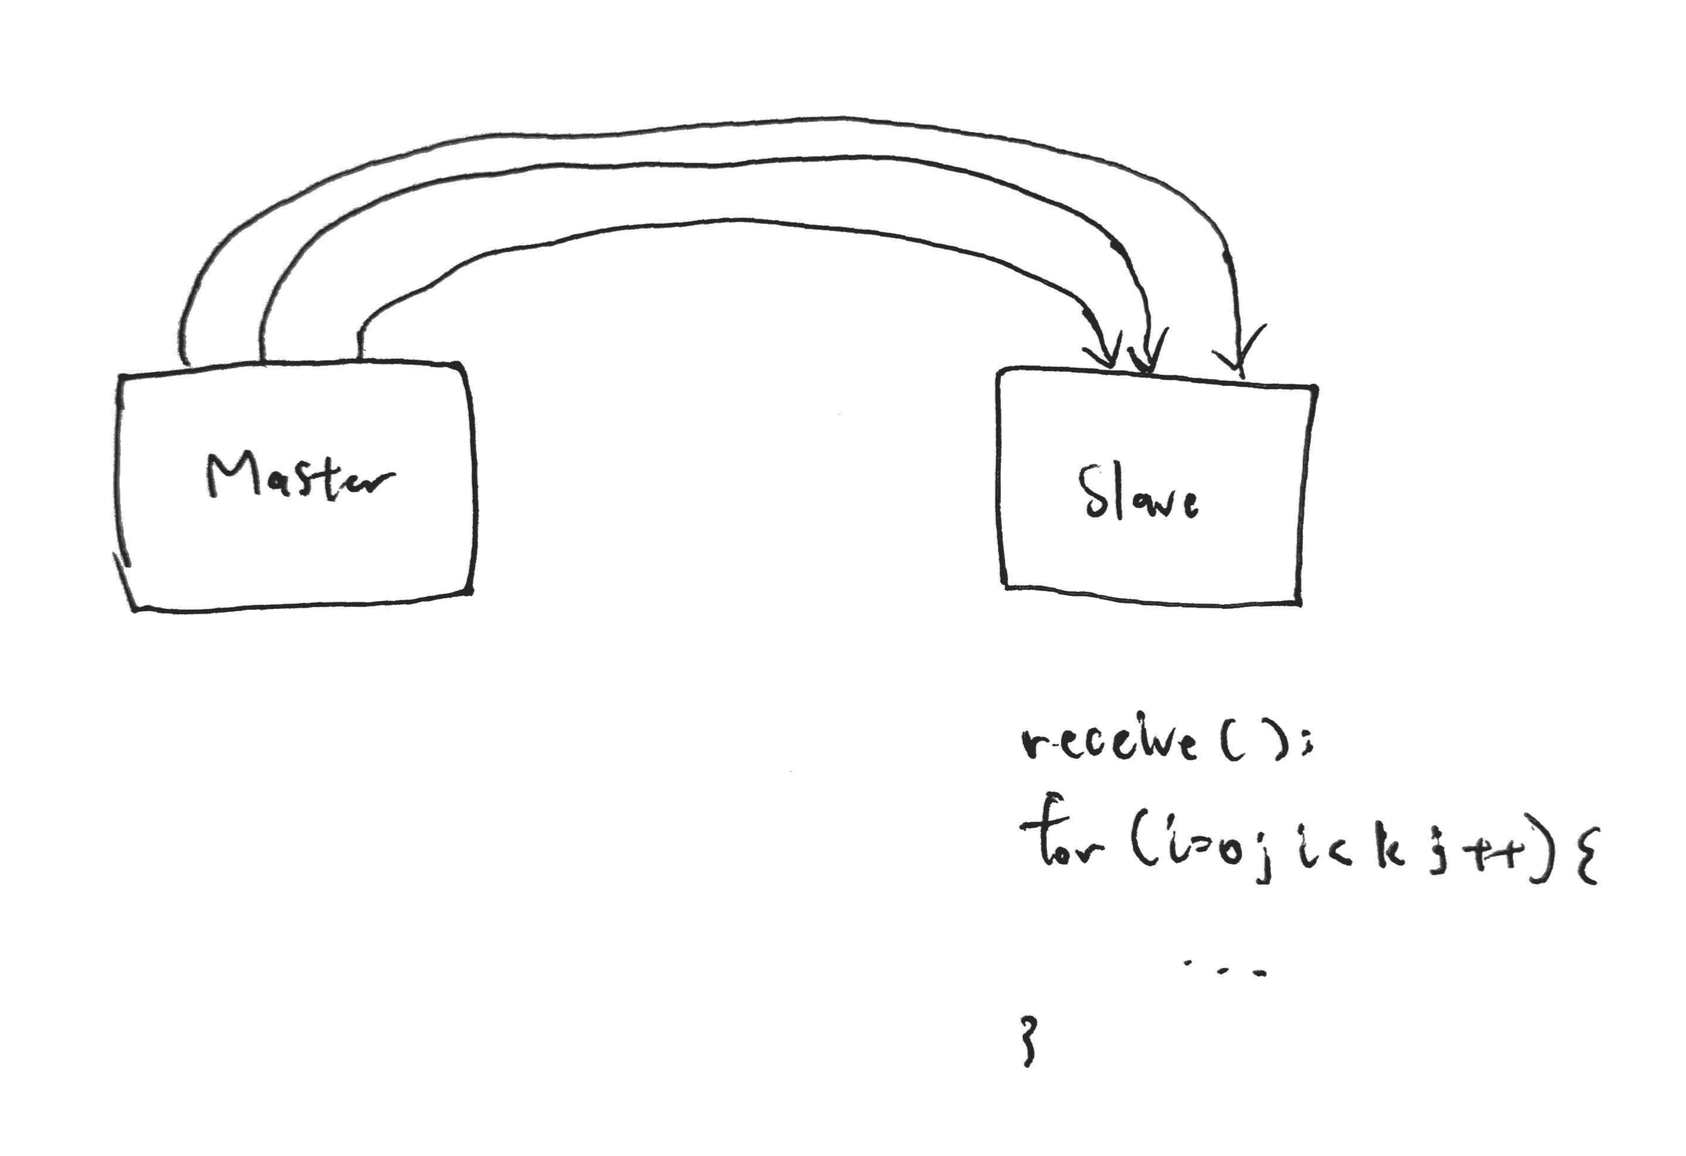 Master
Slave
receive();
for (i=0; i<k; ++) {
...
}